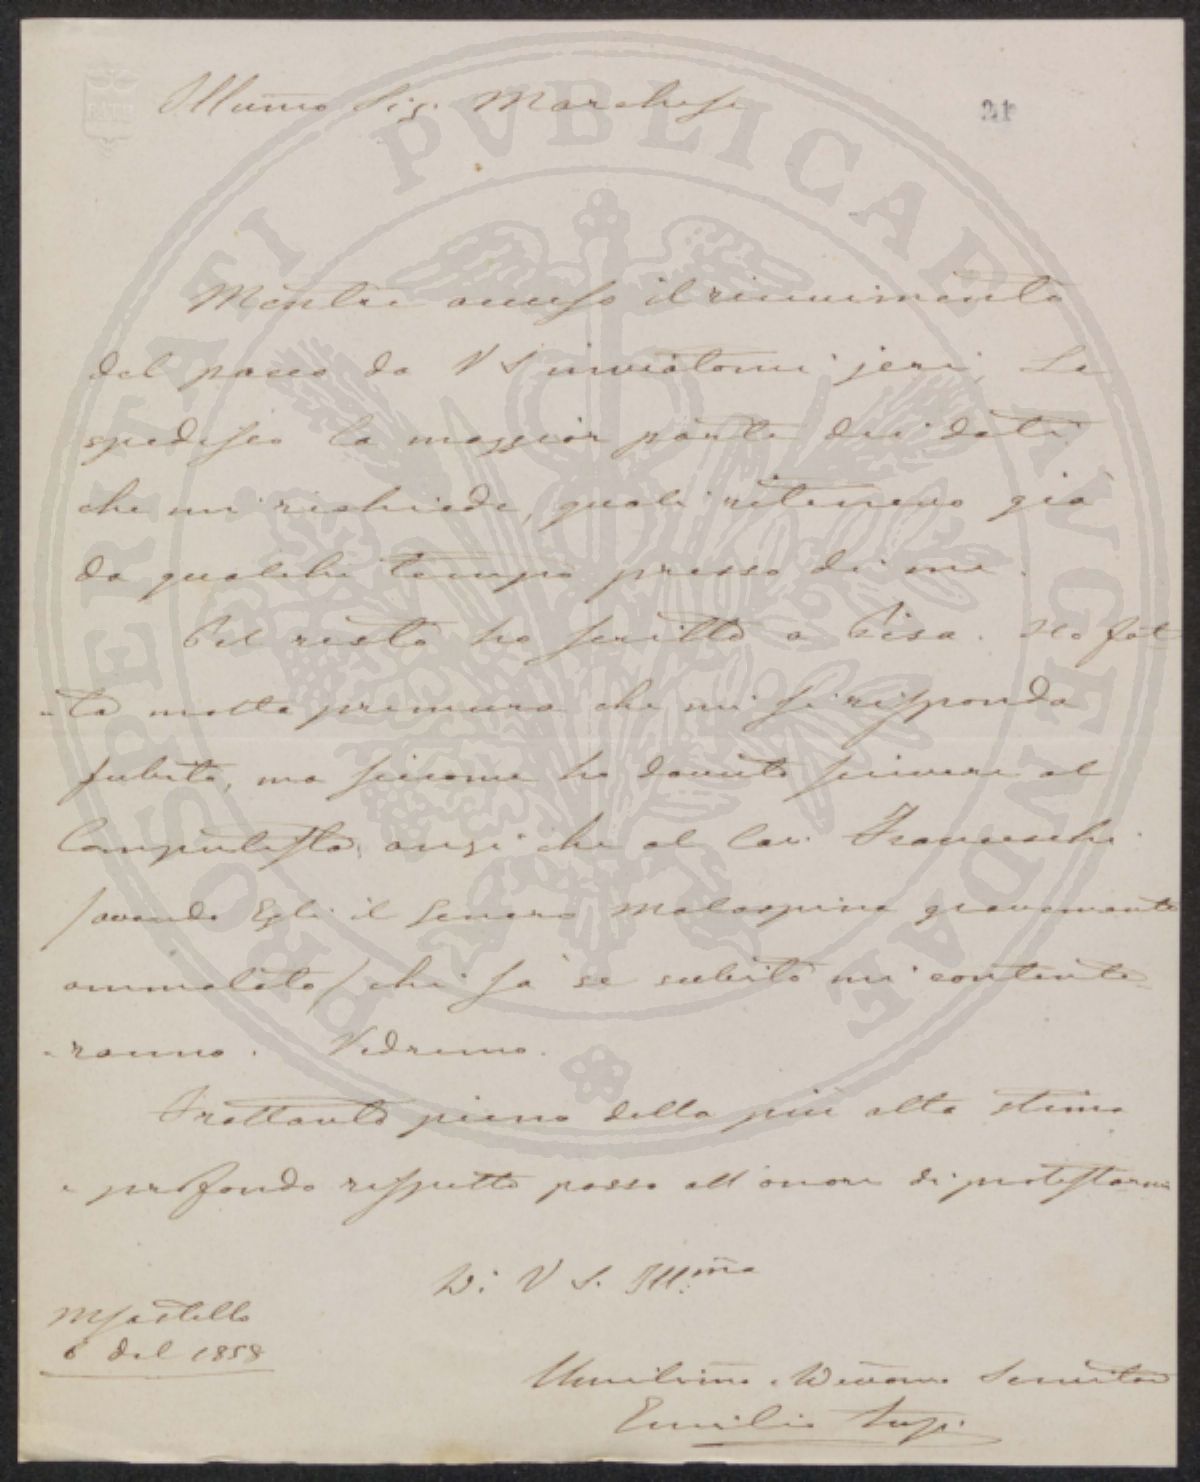 Illumo Sig. Marchese
Mentre accuso il ricevimento
del pacco da V S inviatomi jeri, Le
spedisco la maggior parte dei dati
che mi richiede, quali ritenevo già
da qualche tempo presso di me.
Pel resto ho scritto a Pisa. Ho fat
-to molta premura che mi si risponda
subito, ma siccome ho dovuto scrivere al
Computista, anzi che al Cav. Franceschi
/avendo Egli il Genero Malaspina gravemente
ammalato/ chi sà se subito mi contente
-ranno. Vedremo.
Frattanto pieno della più alta stima
e profondo rispetto passo all'onore di protestarmi
Di V S. Ill.ma
6 del 1858
Umilimo Devomo Servitor
Emilio
PROSPERITATI PVBLICAE AVGENDAE